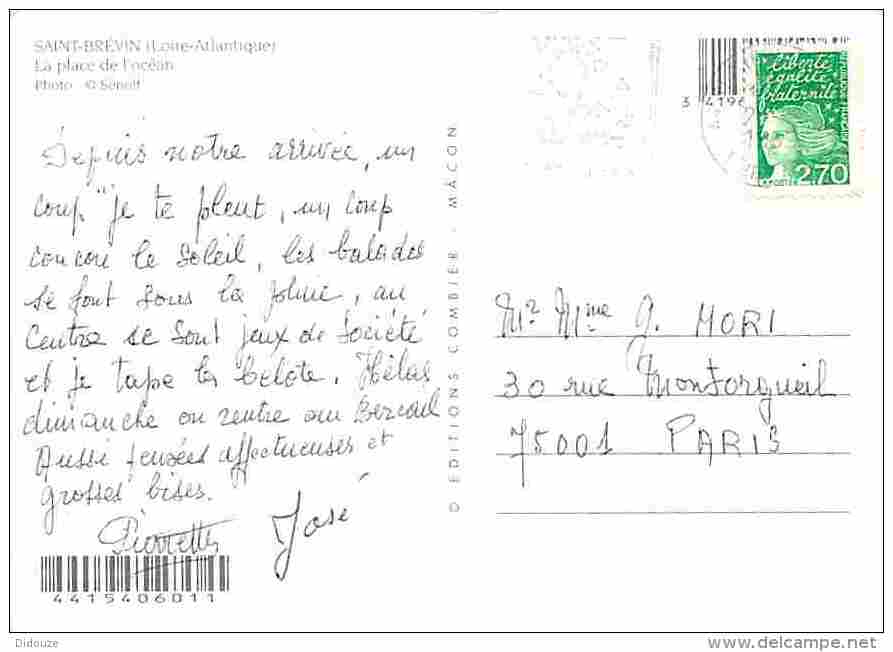 SAINT-BRÉVIN (Loire-Atlantique)
La place de l'océan
Photo © Senoff
Depuis notre arrivée, un
coup "je te pleut, un coup
coucou le soleil, les balades
se font sous la pluie, au
Centre se sont jeux de Société
et je tape la belote. Hélas
dimanche on rentre au Bercail
Aussi pensées affectueuses et
grosses bises.
Pierrette José
4415406011
© EDITIONS COMBIER - MÂCON
3 4196
Liberté
égalité
fraternité
LA POSTE
2,70
Mr Mme G. MORI
30 rue Montorgueil
75001 PARIS
Didouze
www.delcampe.net